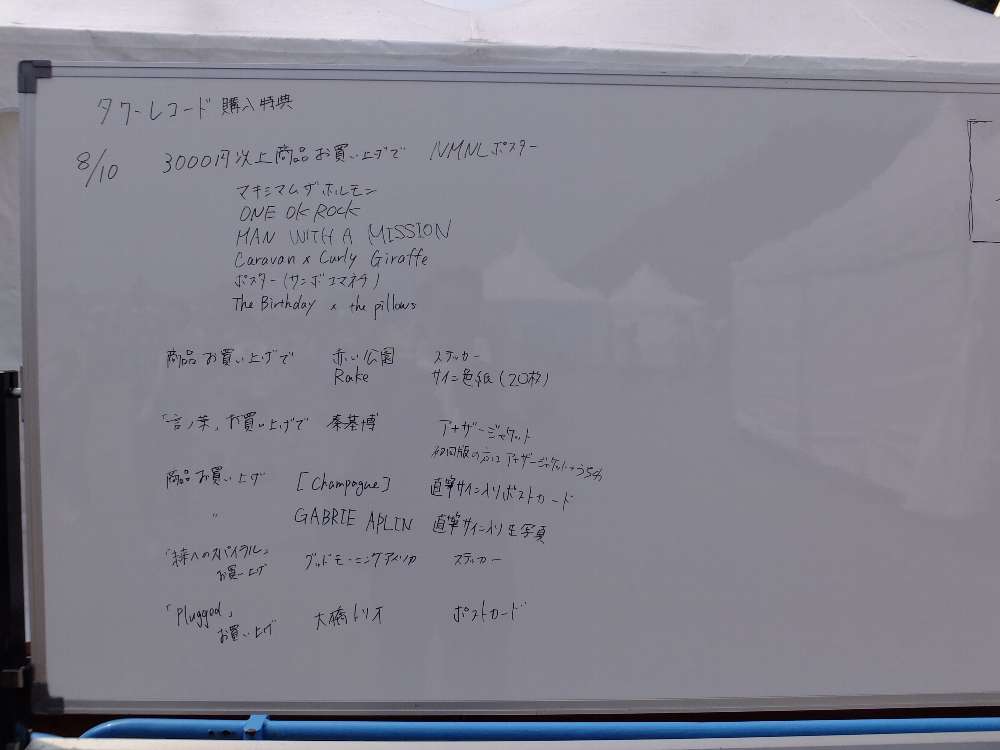 タワーレコード 購入特典
8/10 3000円以上商品お買い上げで NMNLポスター
マキシマムザホルモン
ONE OK ROCK
MAN WITH A MISSION
Caravan x Curly Giraffe
ポスター(サンボコマネチ)
The Birthday x the pillows
商品お買い上げで 赤い公園 ステッカー
Rake サイン色紙(20枚)
「言ノ葉」お買い上げで 秦基博 アナザージャケット
初回版の方は アナザージャケット+うちわ
商品お買い上げ [Champagne] 直筆サイン入りポストカード
〃 GABRIE APLIN 直筆サイン入り生写真
「未来へのスパイラル」
お買い上げ グッドモーニングアメリカ ステッカー
「Plugged」
お買い上げ 大橋トリオ ポストカード